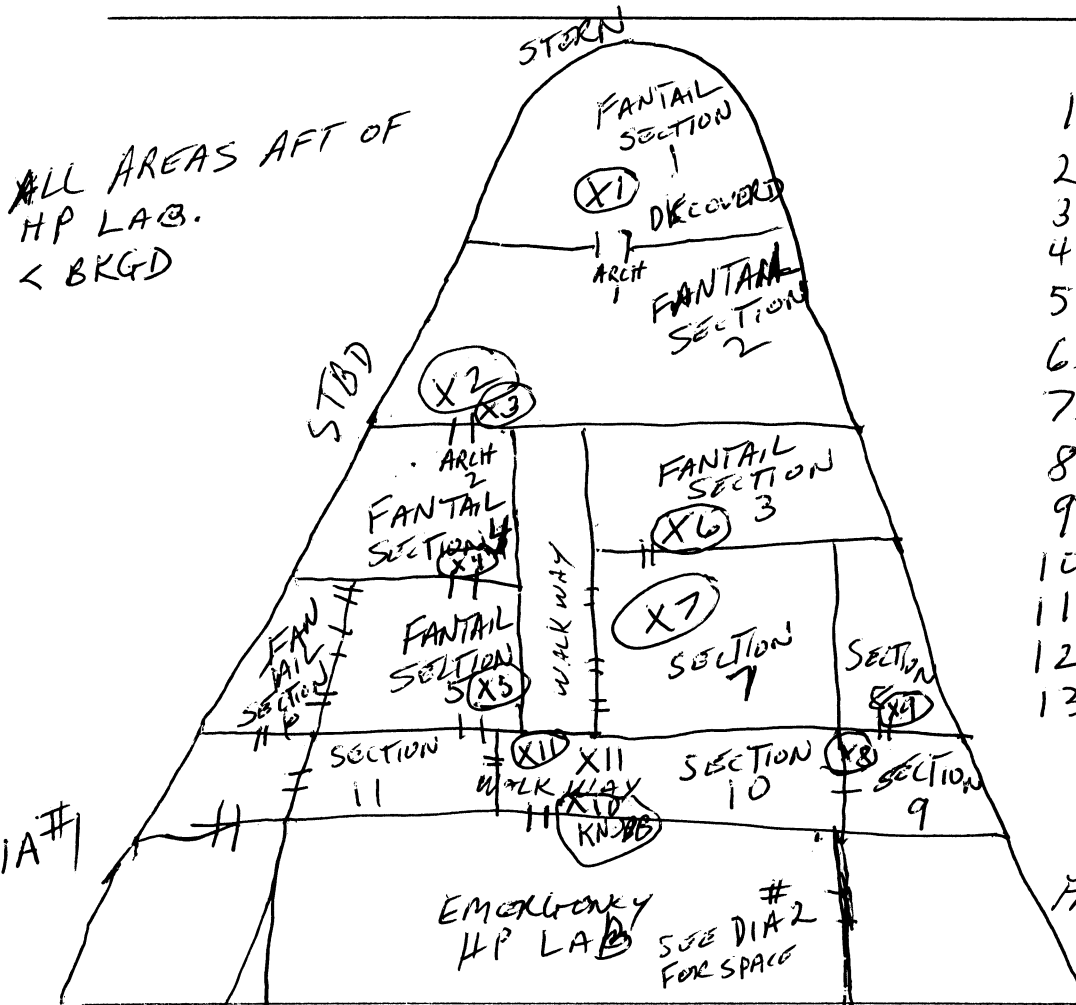 STERN
FANTAIL
SECTION
1
X1
DISCOVERD
ALL AREAS AFT OF
HP LAB.
< BKGD
ARCH
1
FANTAIL
SECTION
2
STBD
X2
X3
ARCH
2
FANTAIL
SECTION 4
X4
FANTAIL
SECTION
3
X6
WALKWAY
X7
SECTION
7
FAN
TAIL
SECTION
6
FANTAIL
SECTION
5 X5
SECTION
8 X9
SECTION
11
X11
X11
WALK WAY
X10
KNOBB
SECTION
10
X8
SECTION
9
IA #1
EMERGENCY
HP LAB
SEE DIA # 2
FOR SPACE
1
2
3
4
5
6.
7.
8
9
10
11
12
13